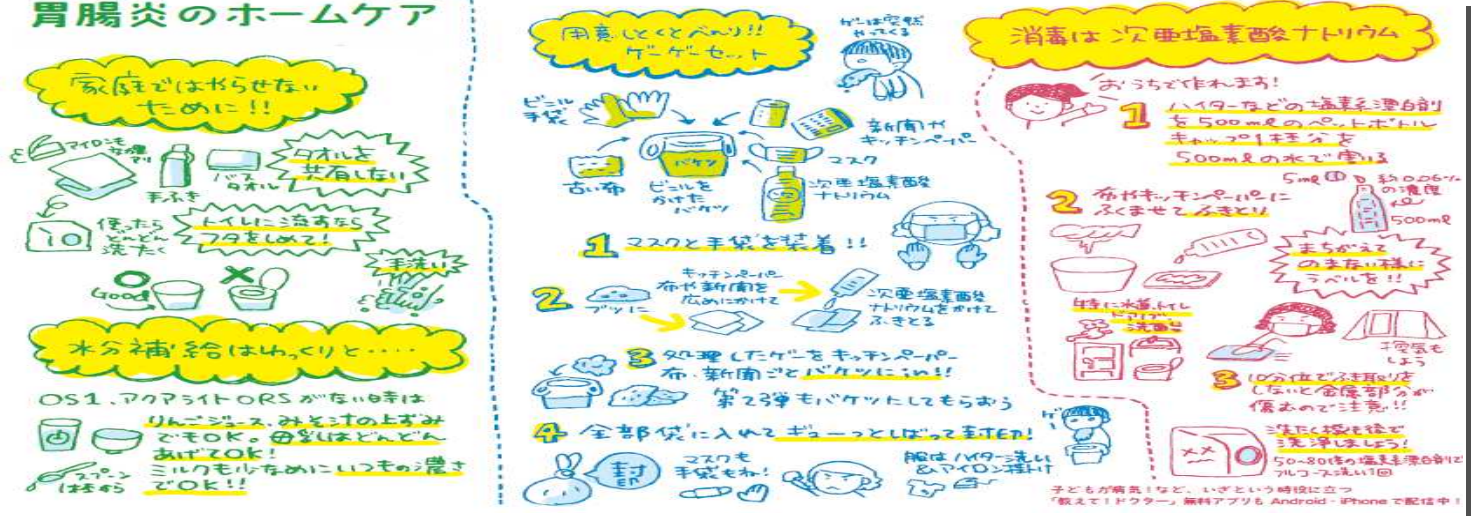 胃腸炎のホームケア
家庭ではやらせない
ために!!
アイロンも
手ふき
バス
タオル
タオルを
共有しない
使ったら
どんどん
洗たく
トイレに流すなら
フタをしめて!
手洗い
Good
水分補給はゆっくりと....
OS1、アクアライトORSがない時は
りんごジュース、みそ汁の上ずみ
でもOK。母乳はどんどん
あげてOK!
スプーン
1杯から
ミルクも少なめにいつもの濃さ
でOK!!
用意しとくとべんり!!
ゲーゲーセット
ゲーは突然
やってくる
ビニール
手袋
新聞や
キッチンペーパー
マスク
バケツ
古い布
ビニルを
かけた
バケツ
次亜塩素酸
ナトリウム
1 マスクと手袋を装着!!
2
ブツに
キッチンペーパー
布や新聞を
広めにかけて
次亜塩素酸
ナトリウムをかけて
ふきとる
3 処理したゲーをキッチンペーパー
布、新聞ごとバケツにIN!!
第2弾もバケツにしてもらおう
4 全部袋に入れてギューっとしばって封印!
封印
マスクも
手袋もね!
服はハイター洗い
&アイロン掛け
ゲー
消毒は次亜塩素酸ナトリウム
おうちで作れます!
1 ハイターなどの塩素系漂白剤
を500mlのペットボトル
キャップ1杯分を
500mlの水で割る
5ml
約0.06%
の濃度
500ml
2 布やキッチンペーパーに
ふくませてふきとり
まちがえて
のまない様に
ラベルを!!
特に水道、トイレ
ドアノブ、
洗面台
換気も
しよう
3 10分位でふき取りを
しないと金属部分が
傷むので注意!!
洗たく機も後で
洗浄しましょう!
50~80倍の塩素系漂白剤で
フルコース洗い1回
子どもが病気!など、いざという時役に立つ
「教えて!ドクター」無料アプリも Android・iPhoneで配信中!